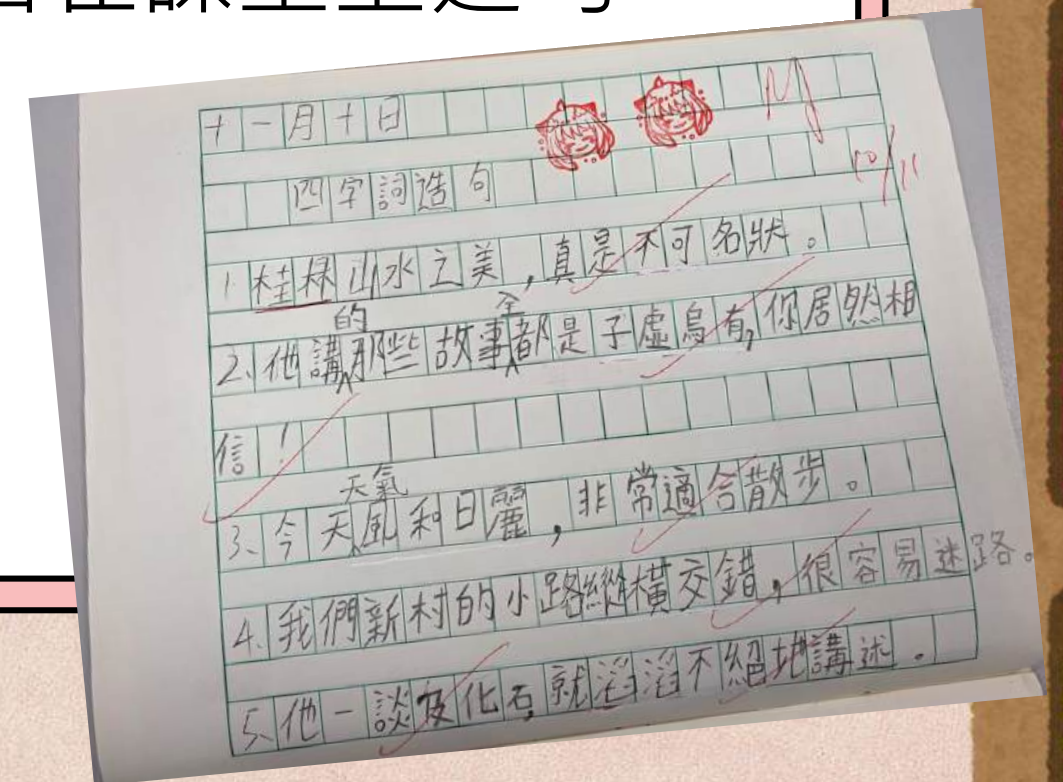 在課堂上造句
十一月十日
四字詞造句
10/11
1. 桂林山水之美，真是不可名狀。
的 全
2. 他講那些故事都是子虛烏有，你居然相
信！
天氣
3、今天風和日麗，非常適合散步。
4. 我們新村的小路縱橫交錯，很容易迷路。
5. 他一談及化石，就滔滔不絕地講述。